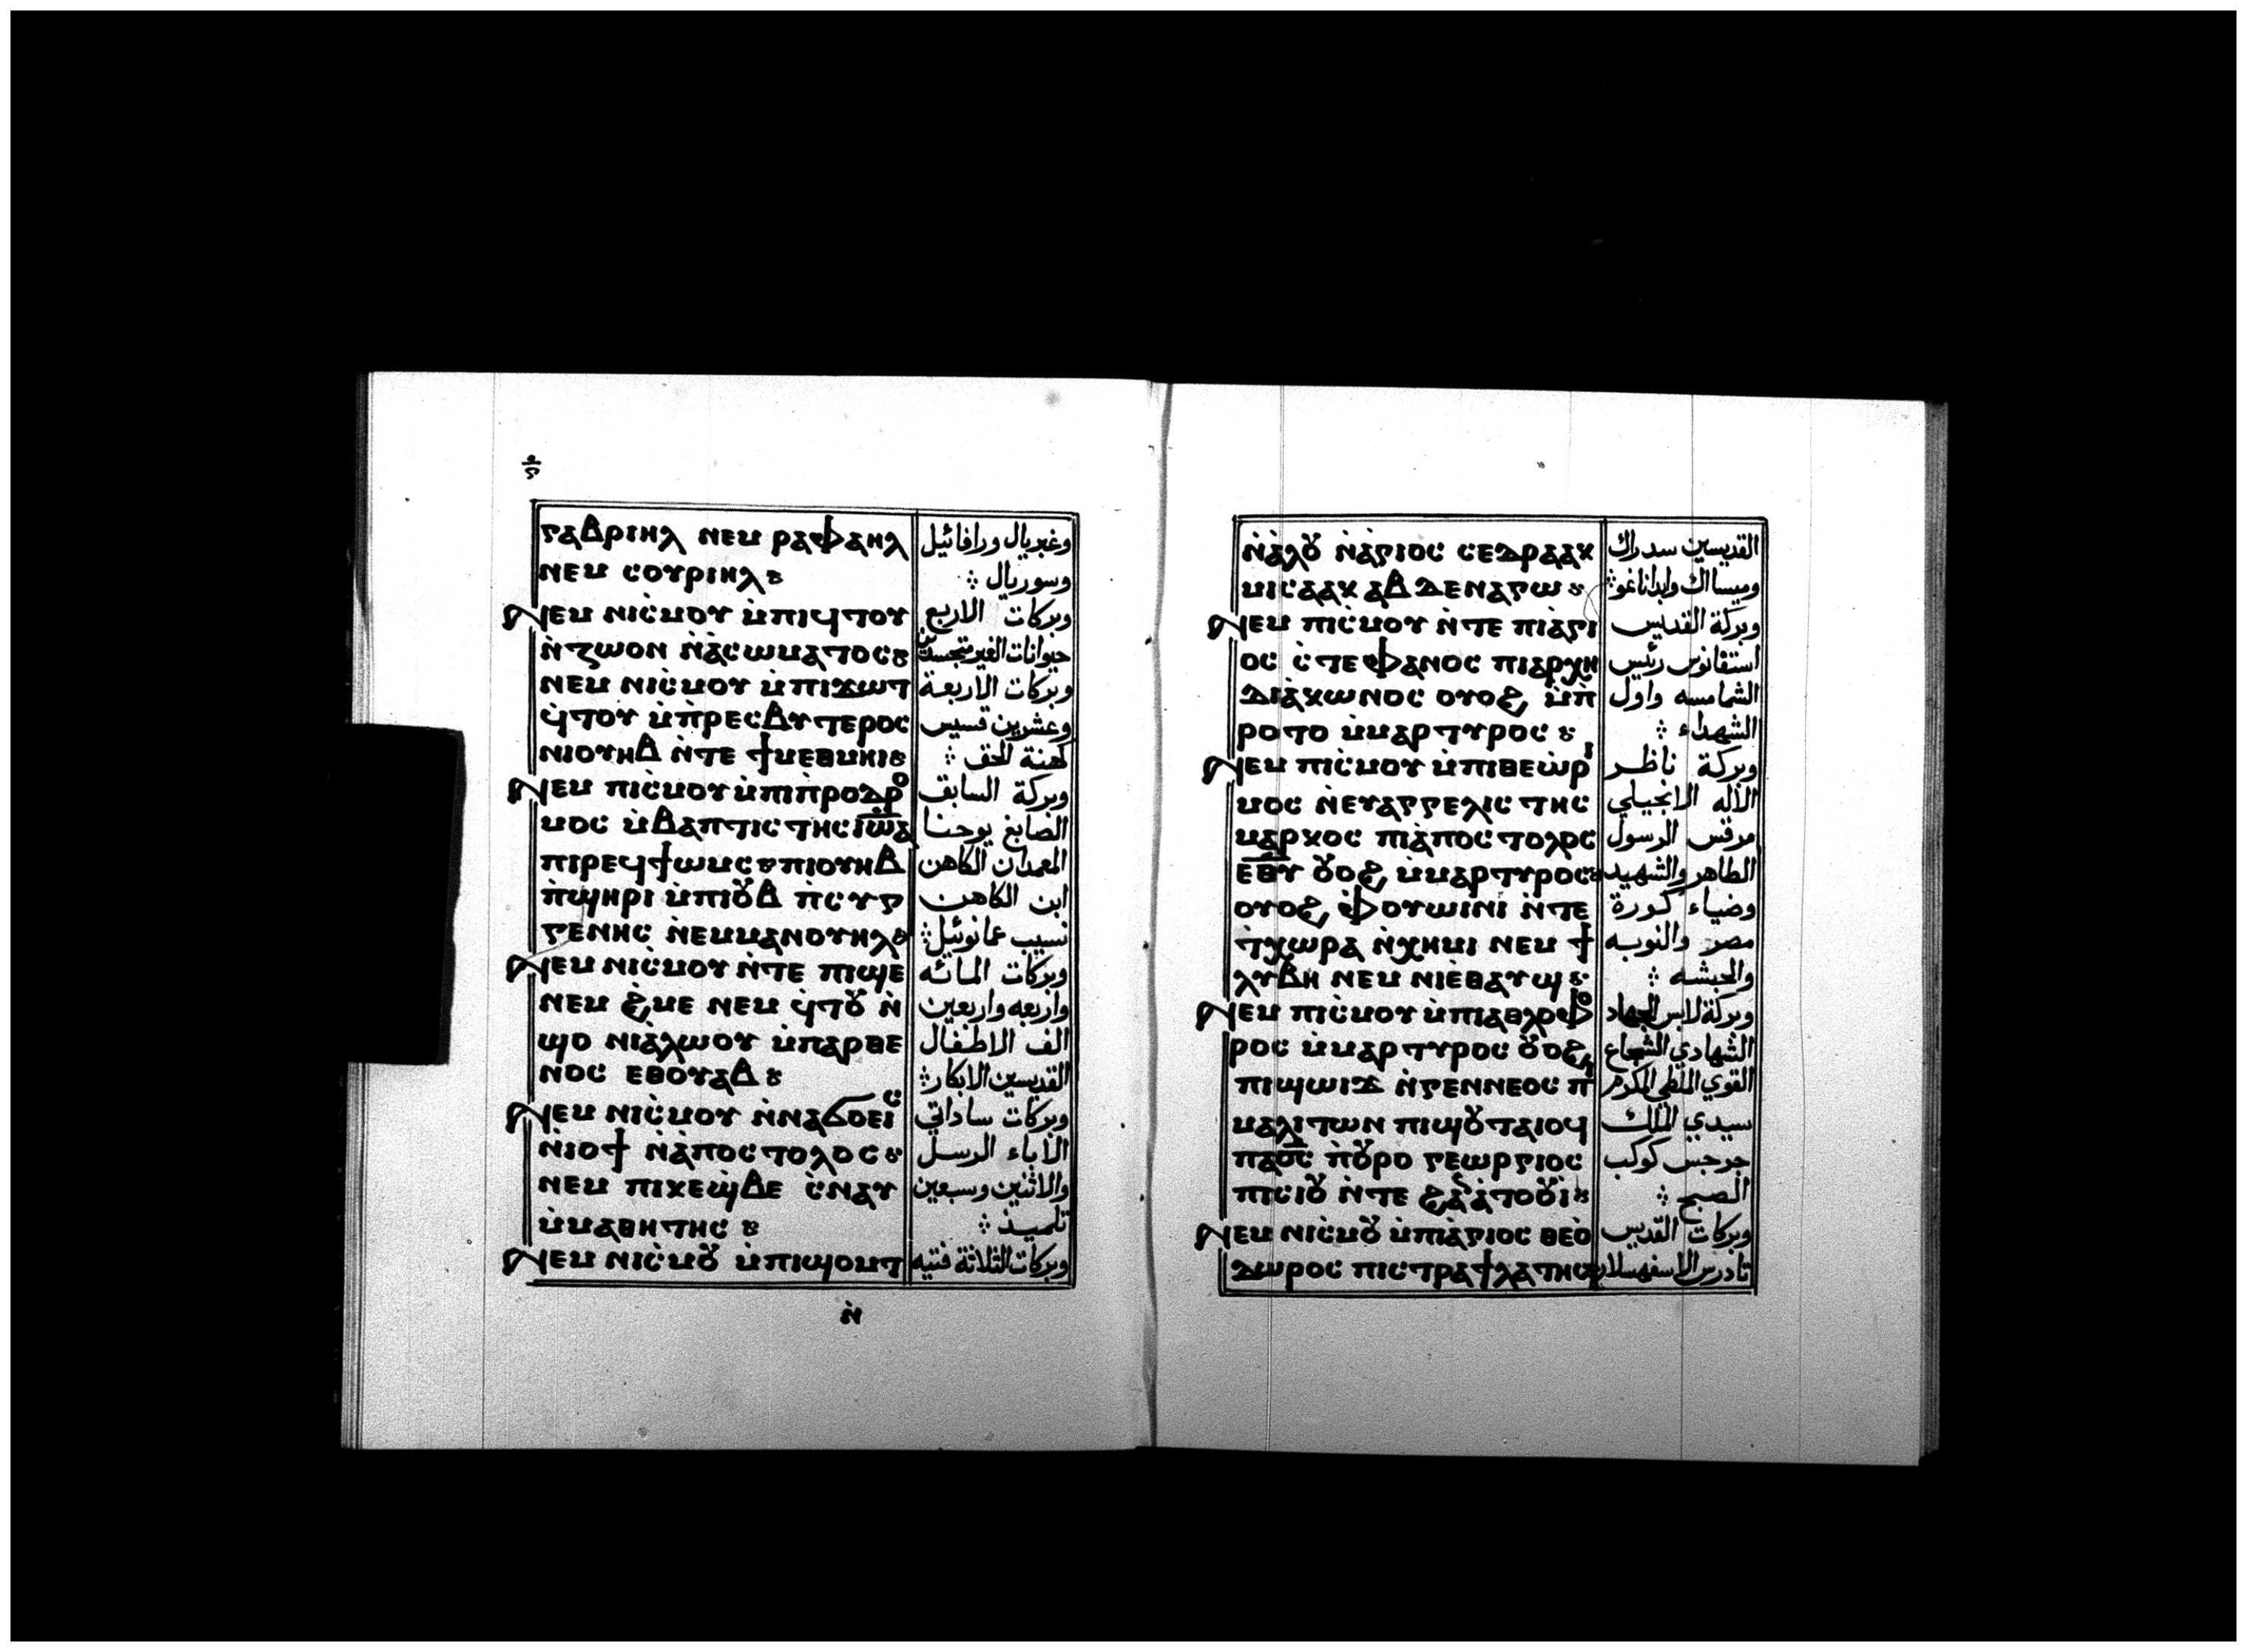 ⲅⲁⲃⲣⲓⲏⲗ ⲛⲉⲙ ⲣⲁⲫⲁⲏⲗ وغبريال ورافائيل
ⲛⲉⲙ ⲥⲟⲩⲣⲓⲏⲗ وسوريال
ⲛⲉⲙ ⲛⲓⲥ̀ⲙⲟⲩ ⲙ̀ⲡⲓϥⲧⲟⲩ وبركات الاربع
ⲛ̀ⲧⲍⲱⲟⲛ ⲛ̀ⲁ̀ⲥⲱⲙⲁⲧⲟⲥ حيوانات الغير متجسدين
ⲛⲉⲙ ⲛⲓⲥ̀ⲙⲟⲩ ⲙ̀ⲡⲓϫⲱⲧ وبركات الاربعة
ϥ̀ⲧⲟⲩ ⲙ̀ⲡ̀ⲣⲉⲥⲃⲩⲧⲉⲣⲟⲥ وعشرين قسيس
ⲛⲓⲟⲩⲏⲃ ⲛ̀ⲧⲉ ϯⲙⲉⲑⲙⲏⲓ كهنة الحق
ⲛⲉⲙ ⲡⲓⲥ̀ⲙⲟⲩ ⲙ̀ⲡⲓⲡ̀ⲣⲟⲇⲣⲟ وبركة السابق
ⲙⲟⲥ ⲙ̀ⲃⲁⲡⲧⲓⲥⲧⲏⲥ ⲓⲱⲁ الصابغ يوحنا
ⲡⲓⲣⲉϥϯⲱⲙⲥ ⲡⲓⲟⲩⲏⲃ المعمدان الكاهن
ⲡ̀ϣⲏⲣⲓ ⲙ̀ⲡⲓⲟⲩⲃ ⲡ̀ⲥⲩⲅ ابن الكاهن
ⲅⲉⲛⲏⲥ ⲛ̀ⲉⲙⲙⲁⲛⲟⲩⲏⲗ نسيب عمانوئيل
ⲛⲉⲙ ⲛⲓⲥ̀ⲙⲟⲩ ⲛ̀ⲧⲉ ⲡⲓϣⲉ وبركات المائه
ⲛⲉⲙ ϩ̀ⲙⲉ ⲛⲉⲙ ϥ̀ⲧⲟⲩ ⲛ̀ واربعه واربعين
ϣⲟ ⲛⲓⲁ̀ⲗⲱⲟⲩ ⲙ̀ⲡⲁⲣⲑⲉ الف الاطفال
ⲛⲟⲥ ⲉⲑⲟⲩⲁⲃ القديسين الابكار
ⲛⲉⲙ ⲛⲓⲥ̀ⲙⲟⲩ ⲛ̀ⲛⲁϭⲟⲉⲓⲥ وبركات ساداتي
ⲛ̀ⲓⲟϯ ⲛ̀ⲁ̀ⲡⲟⲥⲧⲟⲗⲟⲥ الاباء الرسل
ⲛⲉⲙ ⲡⲓⲕⲉϣ̀ⲃⲉ ⲥ̀ⲛⲁⲩ والاثنين وسبعين
ⲙ̀ⲙⲁⲑⲏⲧⲏⲥ تلميذ
ⲛⲉⲙ ⲛⲓⲥ̀ⲙⲟⲩ ⲙ̀ⲡⲓϣⲟⲙⲧ وبركات الثلاثة فتيه
ⲛ̀
ⲛ̀ⲁ̀ⲗⲟⲩ ⲛ̀ⲁ̀ⲅⲓⲟⲥ ⲥⲉⲇⲣⲁⲁⲕ القديسين سدراك
ⲙⲓⲥⲁⲁⲕ ⲁⲃⲇⲉⲛⲁⲅⲱ وميساك وابداناغو
ⲛⲉⲙ ⲡⲓⲥ̀ⲙⲟⲩ ⲛ̀ⲧⲉ ⲡⲓⲁ̀ⲅⲓ وبركة القديس
ⲟⲥ ⲥ̀ⲧⲉⲫⲁⲛⲟⲥ ⲡⲓⲁⲣⲭⲏ استفانوس رئيس
ⲇⲓⲁ̀ⲕⲱⲛⲟⲥ ⲟⲩⲟϩ ⲙ̀ⲡ̀ الشمامسه واول
ⲣⲟⲧⲟ ⲙ̀ⲙⲁⲣⲧⲩⲣⲟⲥ الشهداء
ⲛⲉⲙ ⲡⲓⲥ̀ⲙⲟⲩ ⲙ̀ⲡⲓⲑⲉⲱ̀ⲣⲓ وبركة ناظر
ⲙⲟⲥ ⲛ̀ⲉⲩⲁⲅⲅⲉⲗⲓⲥⲧⲏⲥ الاله الانجيلي
ⲙⲁⲣⲕⲟⲥ ⲡⲓⲁ̀ⲡⲟⲥⲧⲟⲗⲟⲥ مرقس الرسول
ⲉⲑⲩ ⲟⲩⲟϩ ⲙ̀ⲙⲁⲣⲧⲩⲣⲟⲥ الطاهر والشهيد
ⲟⲩⲟϩ ⲫⲟⲩⲱⲓⲛⲓ ⲛ̀ⲧⲉ وضياء كورة
ⲧ̀ⲭⲱⲣⲁ ⲛ̀ⲭⲏⲙⲓ ⲛⲉⲙ ϯ مصر والنوبه
ⲗⲩⲃⲏ ⲛⲉⲙ ⲛⲓⲉⲑⲁⲩϣ والحبشه
ⲛⲉⲙ ⲡⲓⲥ̀ⲙⲟⲩ ⲙ̀ⲡⲓⲁⲑⲗⲟⲫⲟ وبركة لابس الجهاد
ⲣⲟⲥ ⲙ̀ⲙⲁⲣⲧⲩⲣⲟⲥ ⲟⲩⲟϩ الشهادي الشجاع
ⲡⲓϣⲱⲓϫ ⲛ̀ⲅⲉⲛⲛⲉⲟⲥ ⲡⲓ القوي الملطي المكرم
ⲙⲁⲗⲓⲧⲱⲛ ⲡⲓϣⲟⲩⲧⲁⲓⲟϥ سيدي الملك
ⲡⲁⲟ̅ⲥ̅ ⲡ̀ⲟⲩⲣⲟ ⲅⲉⲱⲣⲅⲓⲟⲥ جرجس كوكب
ⲡⲓⲥⲓⲟⲩ ⲛ̀ⲧⲉ ϩⲁⲛⲁ̀ⲧⲟⲟⲩⲓ̀ الصبح
ⲛⲉⲙ ⲛⲓⲥ̀ⲙⲟⲩ ⲙ̀ⲡⲓⲁ̀ⲅⲓⲟⲥ ⲑⲉⲟ̀ وبركات القديس
ⲇⲱⲣⲟⲥ ⲡⲓⲥⲧⲣⲁϯⲗⲁⲧⲏⲥ تادرس الاسفهسلار